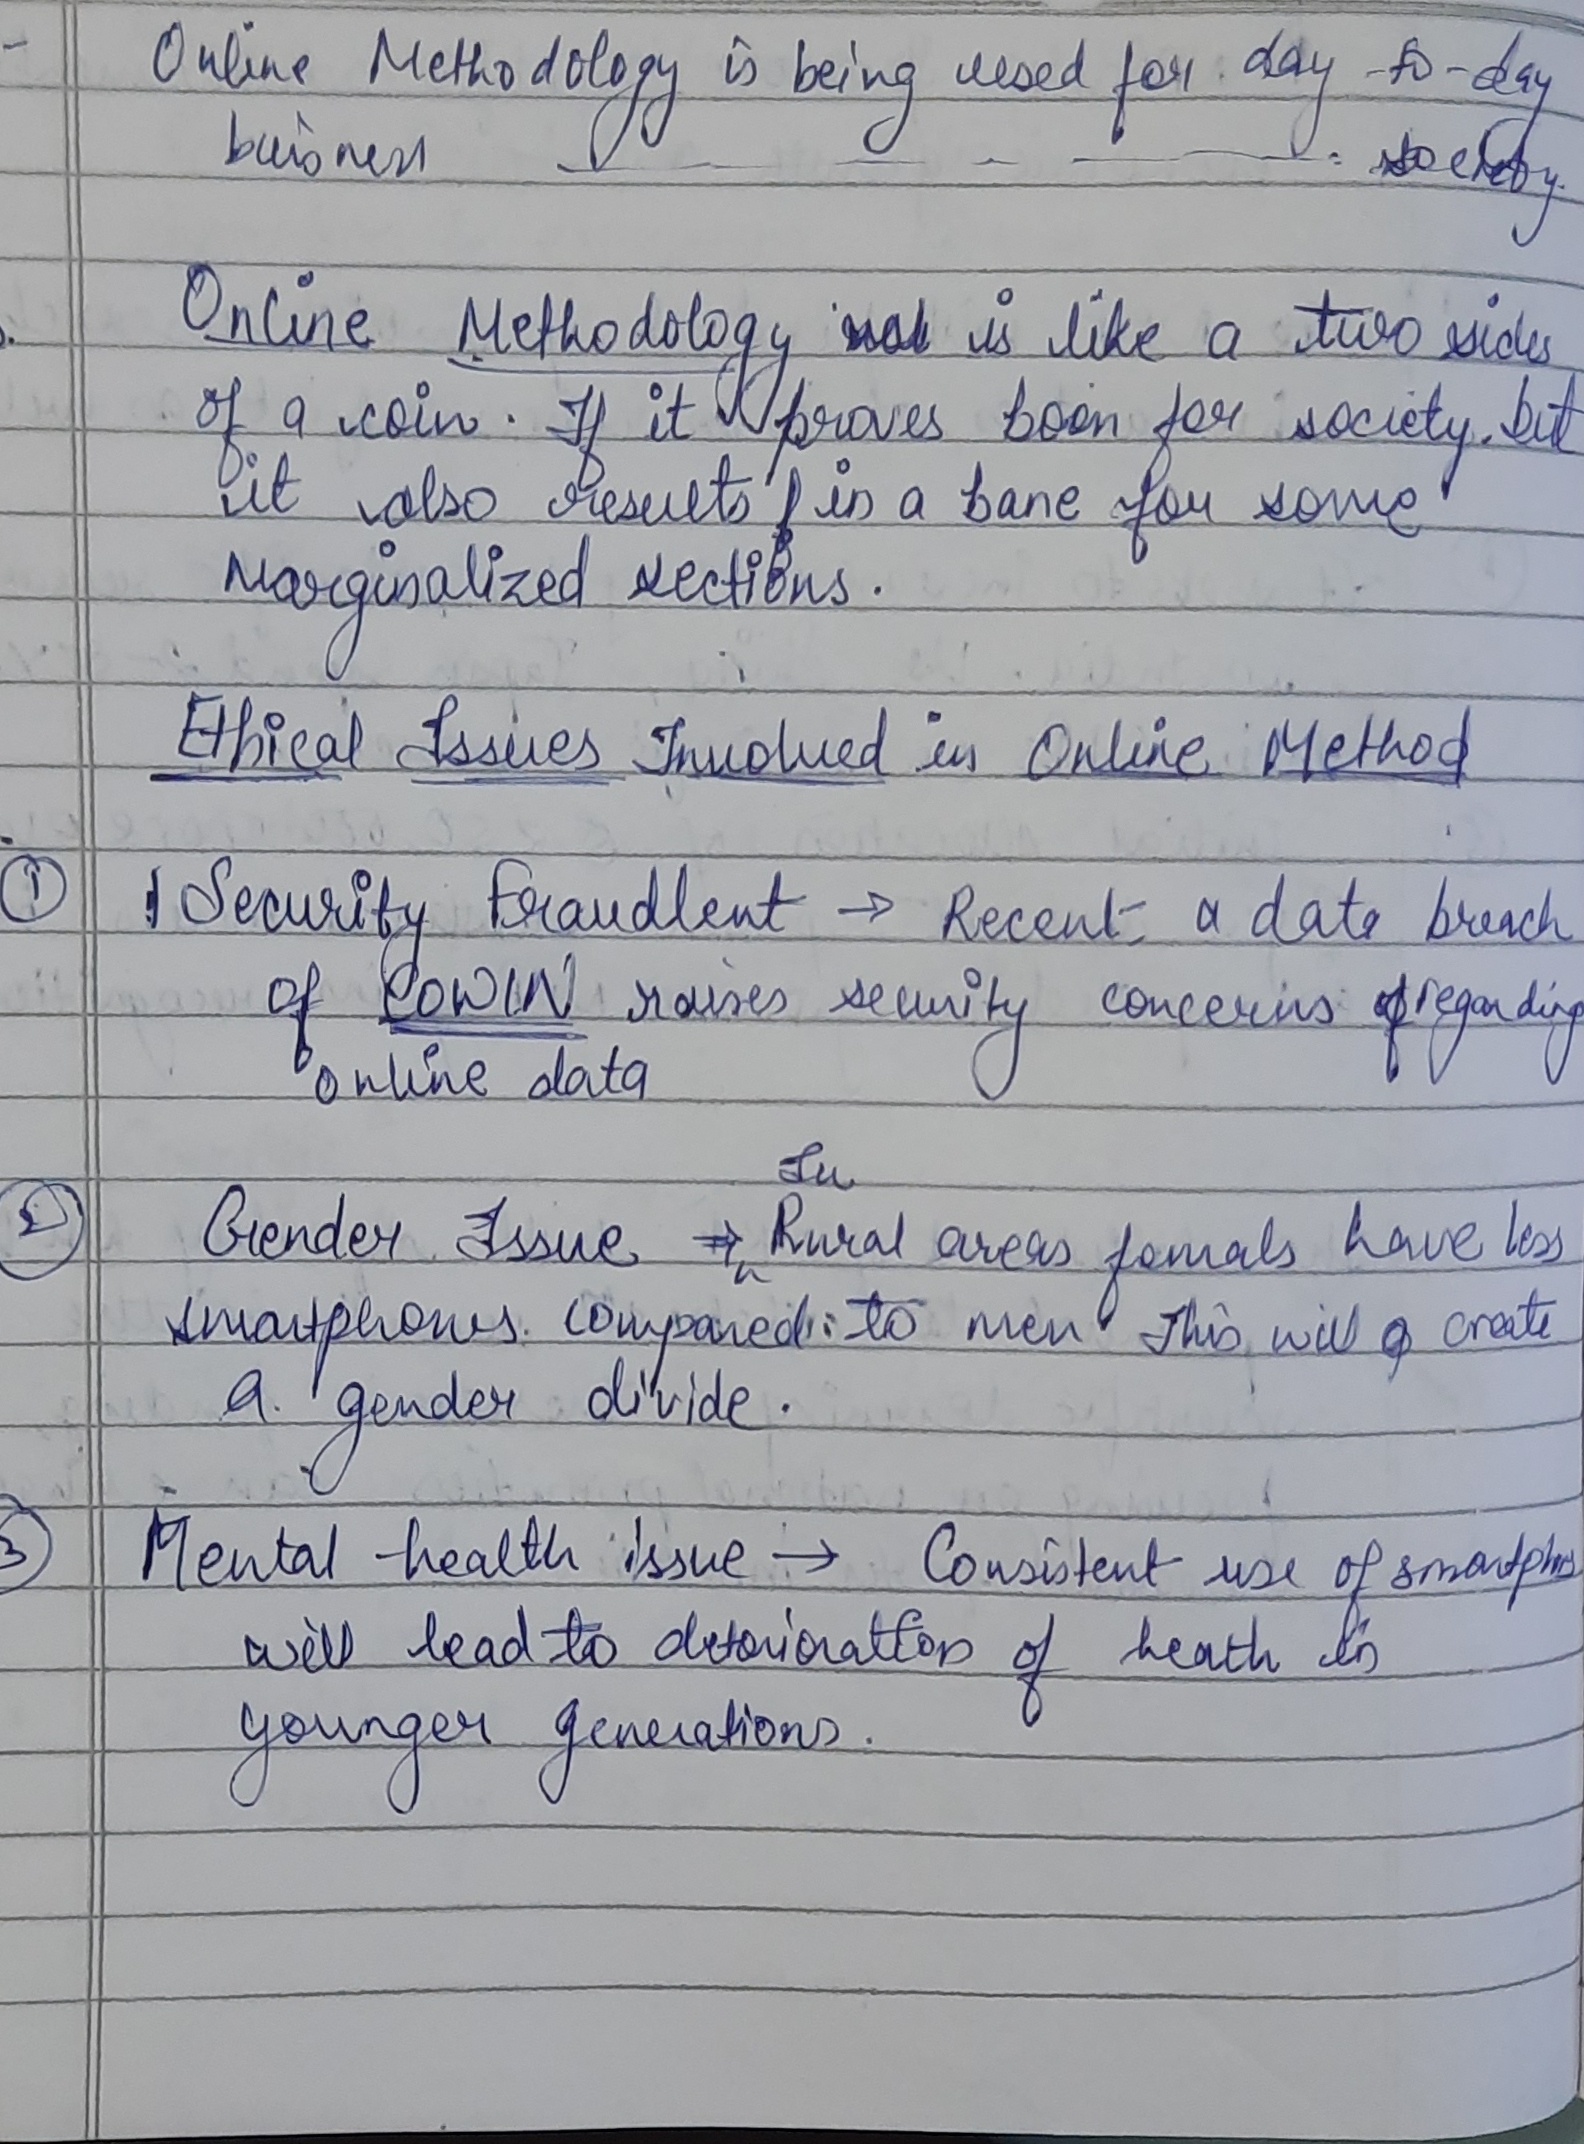 Online Methodology is being used for day-to-day
buisness — — — — — society.
Online Methodology is like a two sides
of a coin. If it proves boon for society, but
it also results in a bane for some
marginalized sections.
Ethical Issues Involved in Online Method
① Security Fraudlent → Recent a data breach
of COWIN raises security concerns regarding
online data
In
② Gender Issue → Rural areas femals have less
smartphones compared to men This will create
a gender divide.
3 Mental health issue → Consistent use of
will lead to deterioration of heath in
younger generations.